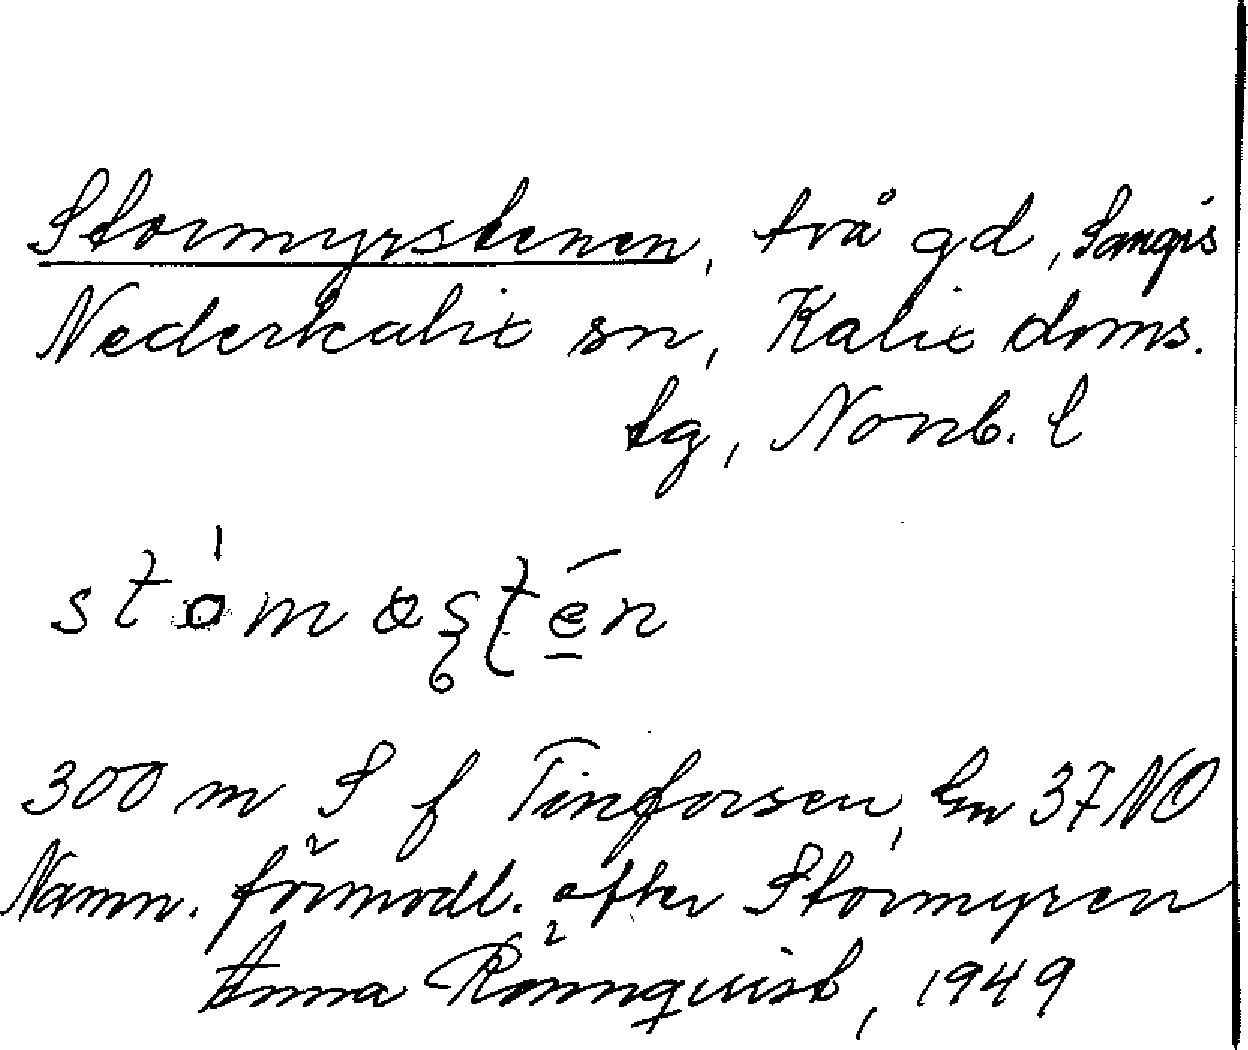 Stormyrstenen, två gd, Sangis
Nederkalix sn, Kalix doms.
tg, Norrb. l
300 m S f Tinforsen, Gm 37 NO
Namn. förmodl. efter Stormyren
Anna Rönnqvist, 1949